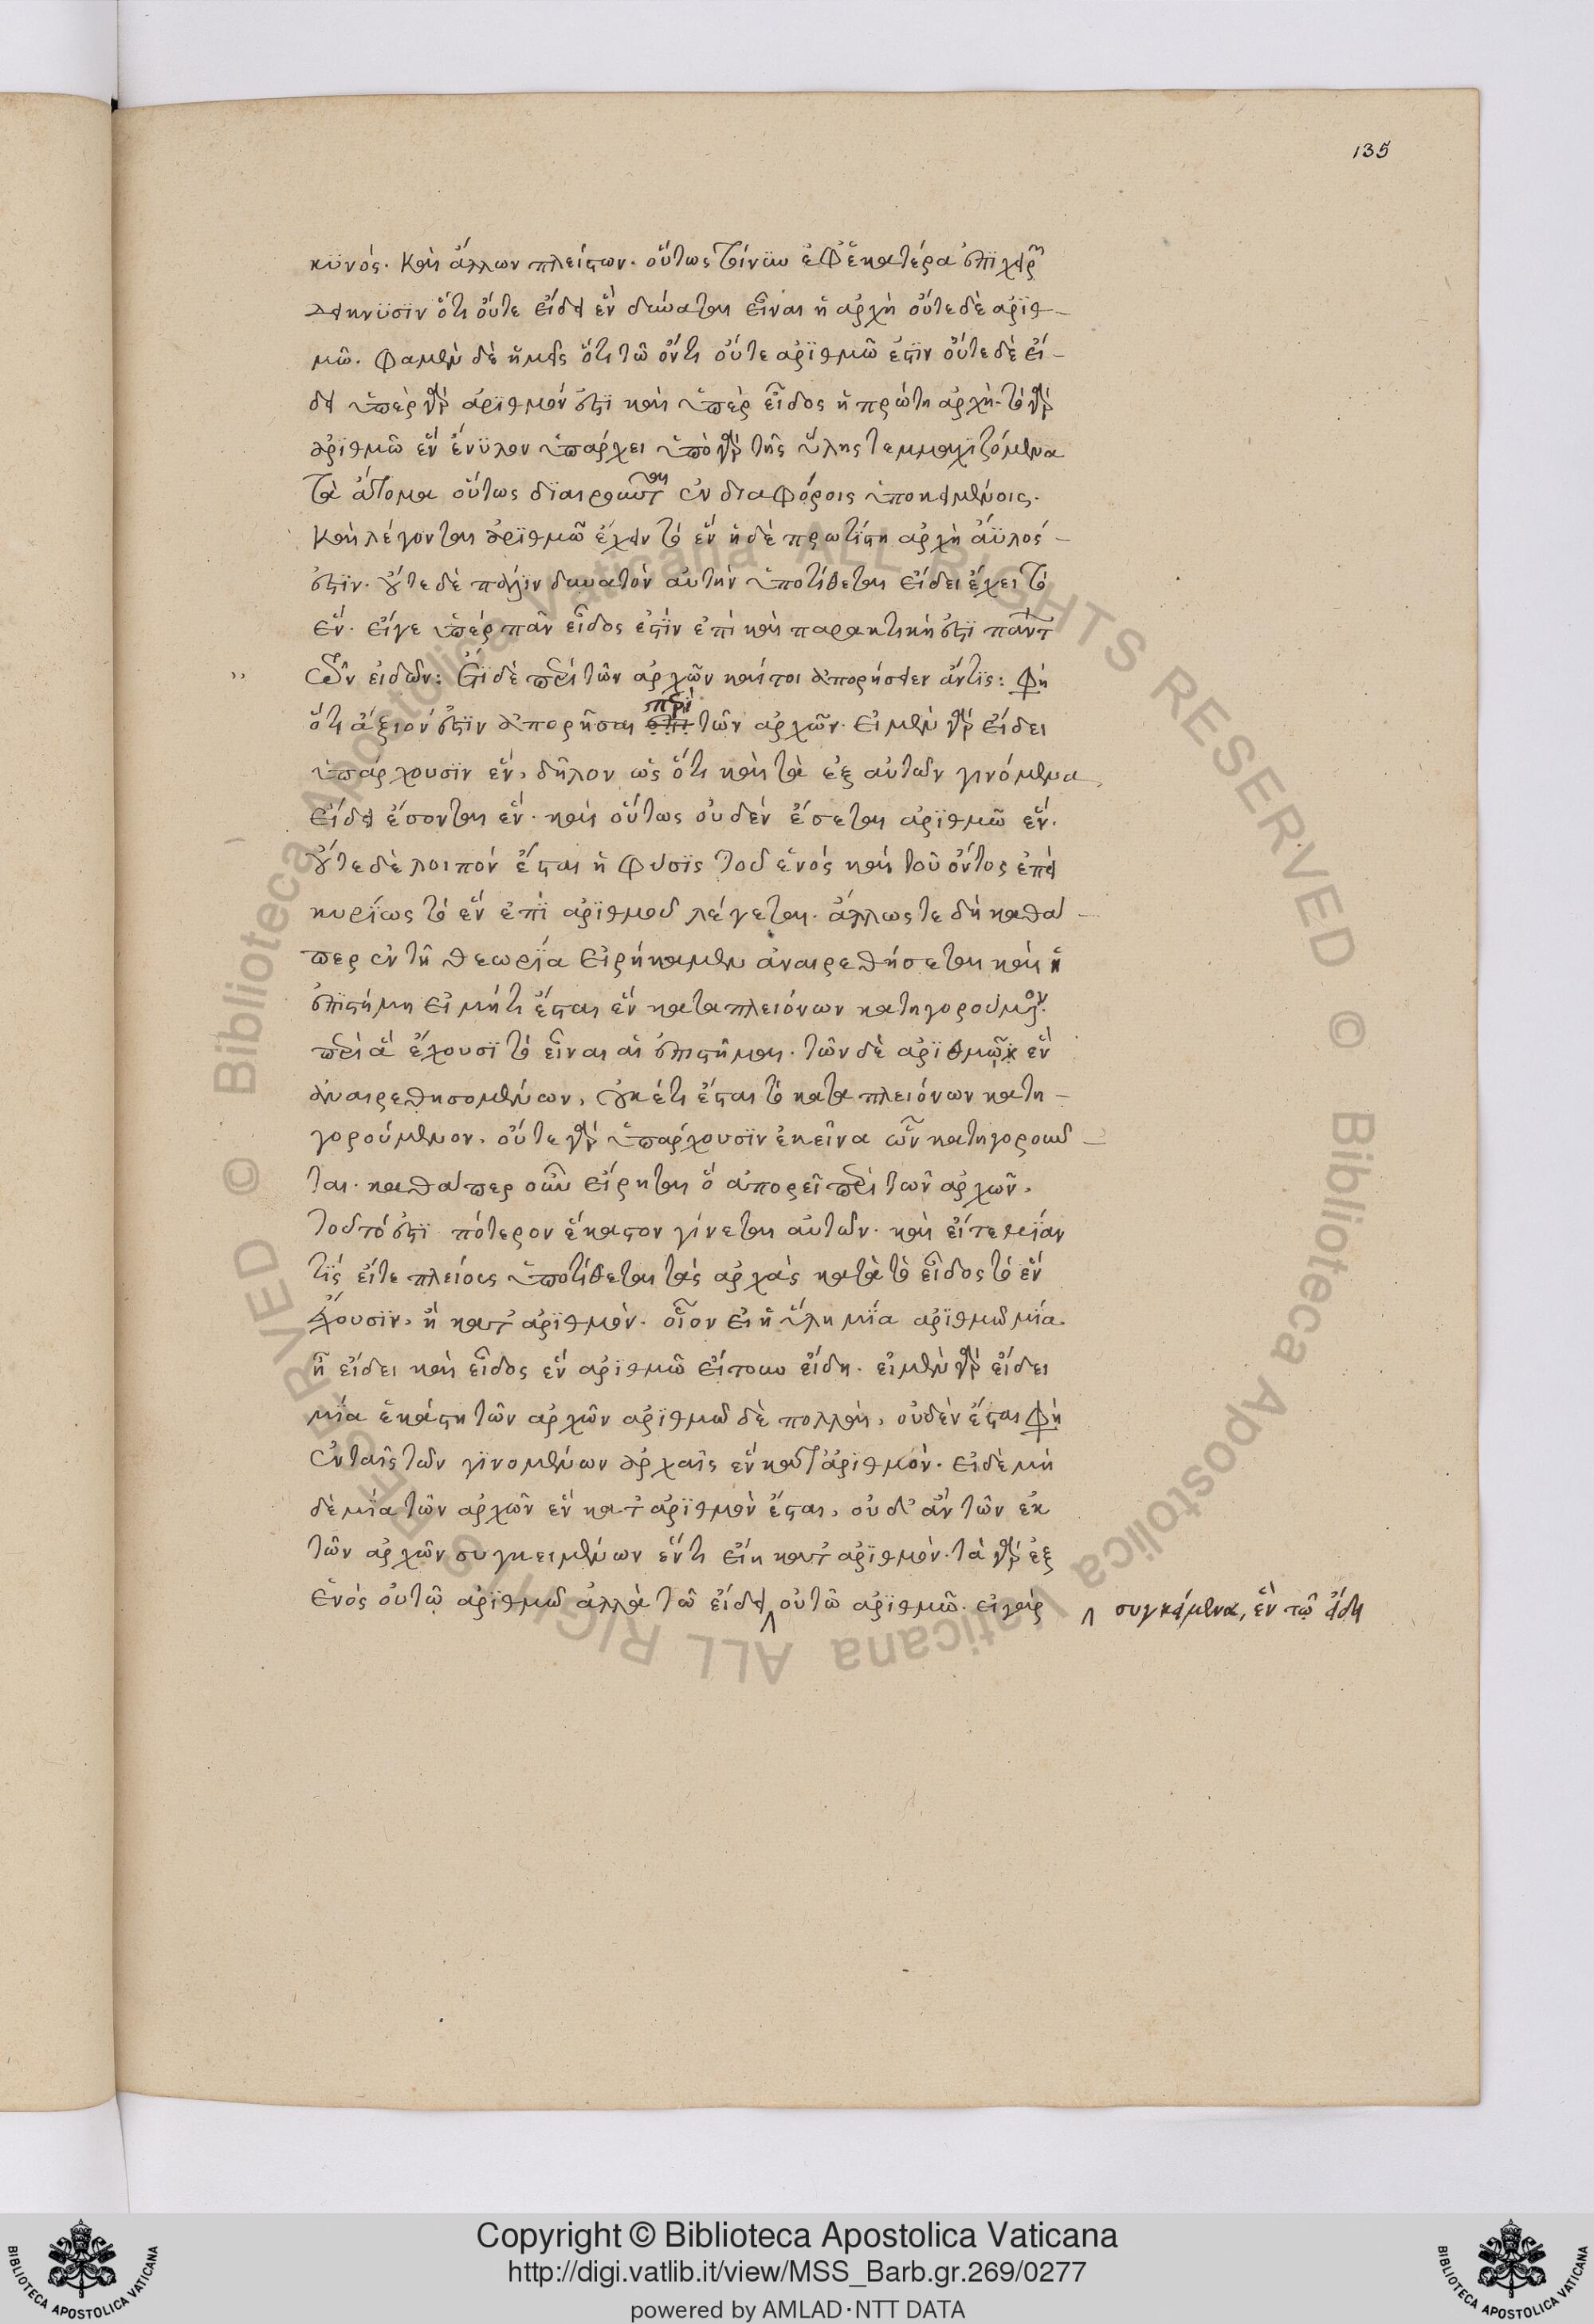 135
κϋνός. καὶ ἄλλων πλείστων. οὕτως τοίνϋν ἐφ ἑκατέρα ἐπϊχειρ
δεικνϋσϊν ὅτι οὔτε εἴδει ἓν δύναται εἶναι ἡ ἀρχὴ οὔτε δὲ ἀρϊθ-
μῶ. φαμὲν δὲ ἡμεῖς ὅτι τῶ ὄντι οὔτε ἀρϊθμῶ ἐστϊν οὔτε δὲ εἴ-
δει ὑπὲρ γὰρ ἀρϊθμόν ἐστϊ καὶ ὑπὲρ εἶδος ἡ πρώτη ἀρχὴ. τὸ γὰρ
ἀρϊθμῶ ἓν ἔνϋλον ὑπάρχει ὑπὸ γὰρ τῆς ὕλης τεμμαχϊζόμενα
τὰ ἄτομα οὕτως δϊαιρ ἐν διαφόροις ὑποκειμένοις.
καὶ λέγονται ἀρϊθμῶ ἔχειν τὸ ἕν ἡ δὲ πρωτίστη ἀρχὴ ἀϋλός
ἐστϊν. οὔτε δὲ πάλϊν δυνατὸν αὐτὴν ὑποτίθεται εἴδει ἔχει τὸ
ἕν. εἴγε ὑπὲρ πᾶν εἶδος ἐστϊν ἐπὶ καὶ παρακτικὴ ἐστϊ πάντ
τῶν εἰδῶν: Ἔτϊ δὲ περὶ τῶν ἀρχῶν καίτοι ἀπορήσειεν ἄν τϊς: φη
ὅτι ἄξιόν ἐστϊν ἀπορῆσαι περὶ τῶν ἀρχῶν. εἰ μὲν γὰρ εἴδει
ὑπάρχουσϊν ἕν, δῆλον ὡς ὅτι καὶ τὰ ἐξ αὐτῶν γινόμενα,
εἴδει ἔσονται ἕν. καὶ οὕτως οὐδὲν ἔσεται ἀρϊθμῶ ἕν.
οὔτε δὲ λοιπόν ἔσται ἡ φύσϊς τοῦ ἑνός καὶ τοῦ ὄντος ἐπεὶ
κυρϊως τὸ ἓν ἐπϊ ἀρϊθμοῦ λέγεται. ἄλλως τε δὴ καθά-
περ ἐν τῆ θεωρϊα εἰρήκαμεν ἀναιρεθήσεται καὶ ἡ
ἐπϊστήμη εἰ μήτι ἔσται ἓν κατα πλειόνων κατηγορούμενον.
περὶ ἃ ἔχουσϊ τὸ εἶναι αἱ ἐπιστῆμαι. τῶν δὲ ἀρϊθμῶ ἓν
ἀναιρεθησομένων, οὐκέτι ἔσται τὸ κατα πλειόνων κατη-
γορούμενον. οὔτε γὰρ ὑπάρχουσϊν ἐκεῖνα ὧν κατηγοροῦ-
ται. καθάπερ οὖν εἴρηται ὃ ἀπορεῖ περὶ τῶν ἀρχῶν.
τοῦτό ἐστϊ πότερον ἕκαστον γίνεται αὐτῶν. καὶ εἴτε μϊαν
τϊς εἴτε πλείους ὑποτίθεται τὰς ἀρχὰς κατὰ τὸ εἶδος τὸ ἓν
ἔχουσϊν, ἢ κατ ἀρϊθμὸν. οἷον εἰ ἡ ὕλη μϊα ἀρϊθμῶ μϊα.
ἢ εἴδει καὶ εἶδος ἓν ἀρϊθμῶ εἴτουν εἴδη. εἰ μὲν γὰρ εἴδει
μϊα ἑκάστη τῶν ἀρχῶν ἀρϊθμῶ δὲ πολλαὶ, οὐδὲν ἔσται φη
ἐν ταῖς τῶν γϊνομένων ἀρχαῖς ἓν κατ ἀρϊθμὸν. εἰ δὲ μὴ
δὲ μϊα τῶν ἀρχῶν ἓν κατ ἀρϊθμὸν ἔσται, οὐδ ἂν τῶν ἐκ
τῶν ἀρχῶν συγκειμένων ἕν τι εἴη κατ ἀρϊθμὸν. τὰ γὰρ ἐξ
ἑνὸς οὐ τῶ ἀρϊθμῶ ἀλλὰ τῶ εἴδει ⋀ οὐ τῶ ἀρϊθμῶ. εἰ γὰρ
⋀ συγκείμενα, ἓν τῷ εἴδει
Copyright © Biblioteca Apostolica Vaticana
http://digi.vatlib.it/view/MSS_Barb.gr.269/0277
powered by AMLAD·NTT DATA
BIBLIOTECA APOSTOLICA VATICANA
BIBLIOTECA APOSTOLICA VATICANA
© Biblioteca Apostolica Vaticana ALL RIGHTS RESERVED
© Biblioteca Apostolica Vaticana ALL RIGHTS RESERVED